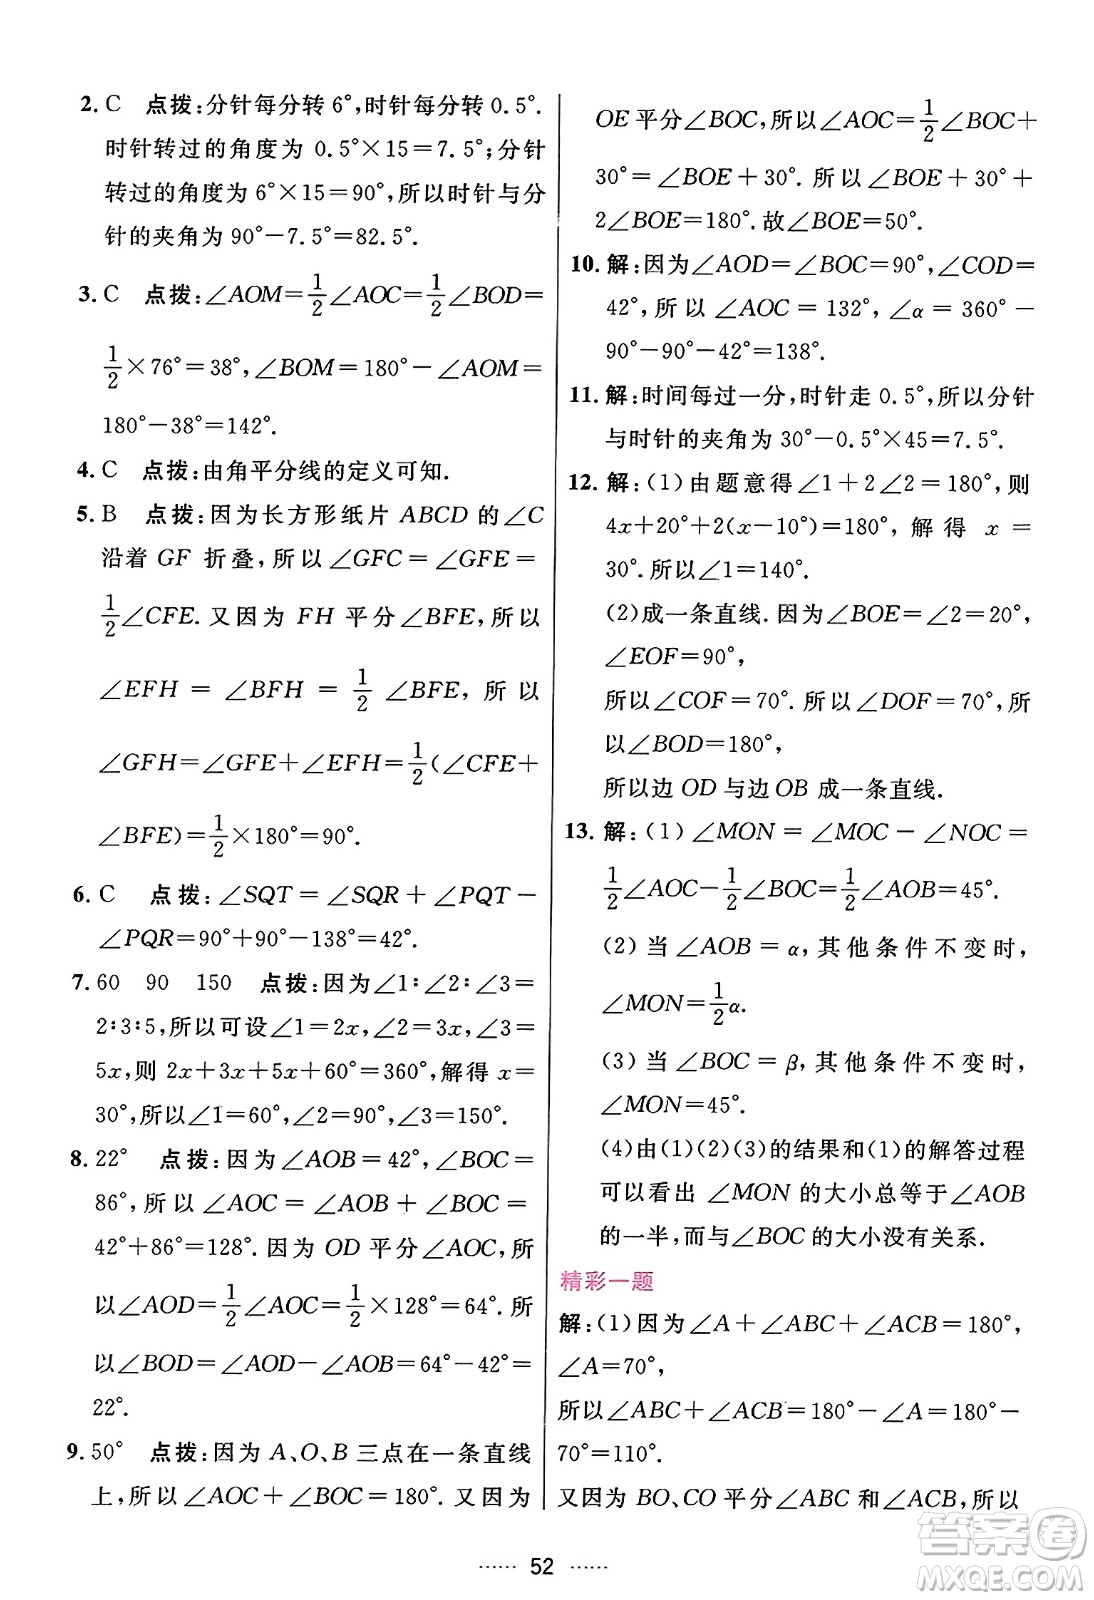 2. C 点拨:分针每分转6°,时针每分转0.5°.
时针转过的角度为 0.5°×15=7.5°;分针
转过的角度为 6°×15=90°,所以时针与分
针的夹角为 90°-7.5°=82.5°.
3. C 点拨:∠AOM=1/2∠AOC=1/2∠BOD=
1/2×76°=38°,∠BOM=180°-∠AOM=
180°-38°=142°.
4. C 点拨:由角平分线的定义可知.
5. B 点拨:因为长方形纸片 ABCD 的∠C
沿着 GF 折叠,所以∠GFC=∠GFE=
1/2∠CFE. 又因为 FH 平分∠BFE,所以
∠EFH = ∠BFH = 1/2 ∠BFE, 所以
∠GFH=∠GFE+∠EFH=1/2(∠CFE+
∠BFE)=1/2×180°=90°.
6. C 点拨:∠SQT=∠SQR+∠PQT-
∠PQR=90°+90°-138°=42°.
7. 60 90 150 点拨:因为∠1∶∠2∶∠3=
2∶3∶5,所以可设∠1=2x,∠2=3x,∠3=
5x,则 2x+3x+5x+60°=360°,解得 x=
30°,所以∠1=60°,∠2=90°,∠3=150°.
8. 22° 点拨:因为∠AOB=42°,∠BOC=
86°,所以∠AOC=∠AOB+∠BOC=
42°+86°=128°. 因为 OD 平分∠AOC,所
以∠AOD=1/2∠AOC=1/2×128°=64°. 所
以∠BOD=∠AOD-∠AOB=64°-42°=
22°.
9. 50° 点拨:因为 A、O、B 三点在一条直线
上,所以∠AOC+∠BOC=180°. 又因为
OE平分∠BOC,所以∠AOC=1/2∠BOC+
30°=∠BOE+30°. 所以∠BOE+30°+
2∠BOE=180°. 故∠BOE=50°.
10. 解:因为∠AOD=∠BOC=90°,∠COD=
42°,所以∠AOC=132°,∠α=360°-
90°-90°-42°=138°.
11. 解:时间每过一分,时针走 0.5°,所以分针
与时针的夹角为 30°-0.5°×45=7.5°.
12. 解:(1)由题意得∠1+2∠2=180°,则
4x+20°+2(x-10°)=180°,解得 x=
30°.所以∠1=140°.
(2)成一条直线. 因为∠BOE=∠2=20°,
∠EOF=90°,
所以∠COF=70°. 所以∠DOF=70°,所
以∠BOD=180°,
所以边 OD 与边 OB 成一条直线.
13. 解:(1)∠MON=∠MOC-∠NOC=
1/2∠AOC-1/2∠BOC=1/2∠AOB=45°.
(2)当∠AOB=α,其他条件不变时,
∠MON=1/2α.
(3)当∠BOC=β,其他条件不变时,
∠MON=45°.
(4)由(1)(2)(3)的结果和(1)的解答过程
可以看出∠MON 的大小总等于∠AOB
的一半,而与∠BOC的大小没有关系.
精彩一题
解:(1)因为∠A+∠ABC+∠ACB=180°,
∠A=70°,
所以∠ABC+∠ACB=180°-∠A=180°-
70°=110°.
又因为 BO、CO平分∠ABC 和∠ACB,所以
52
答案卷
MXQE.COM